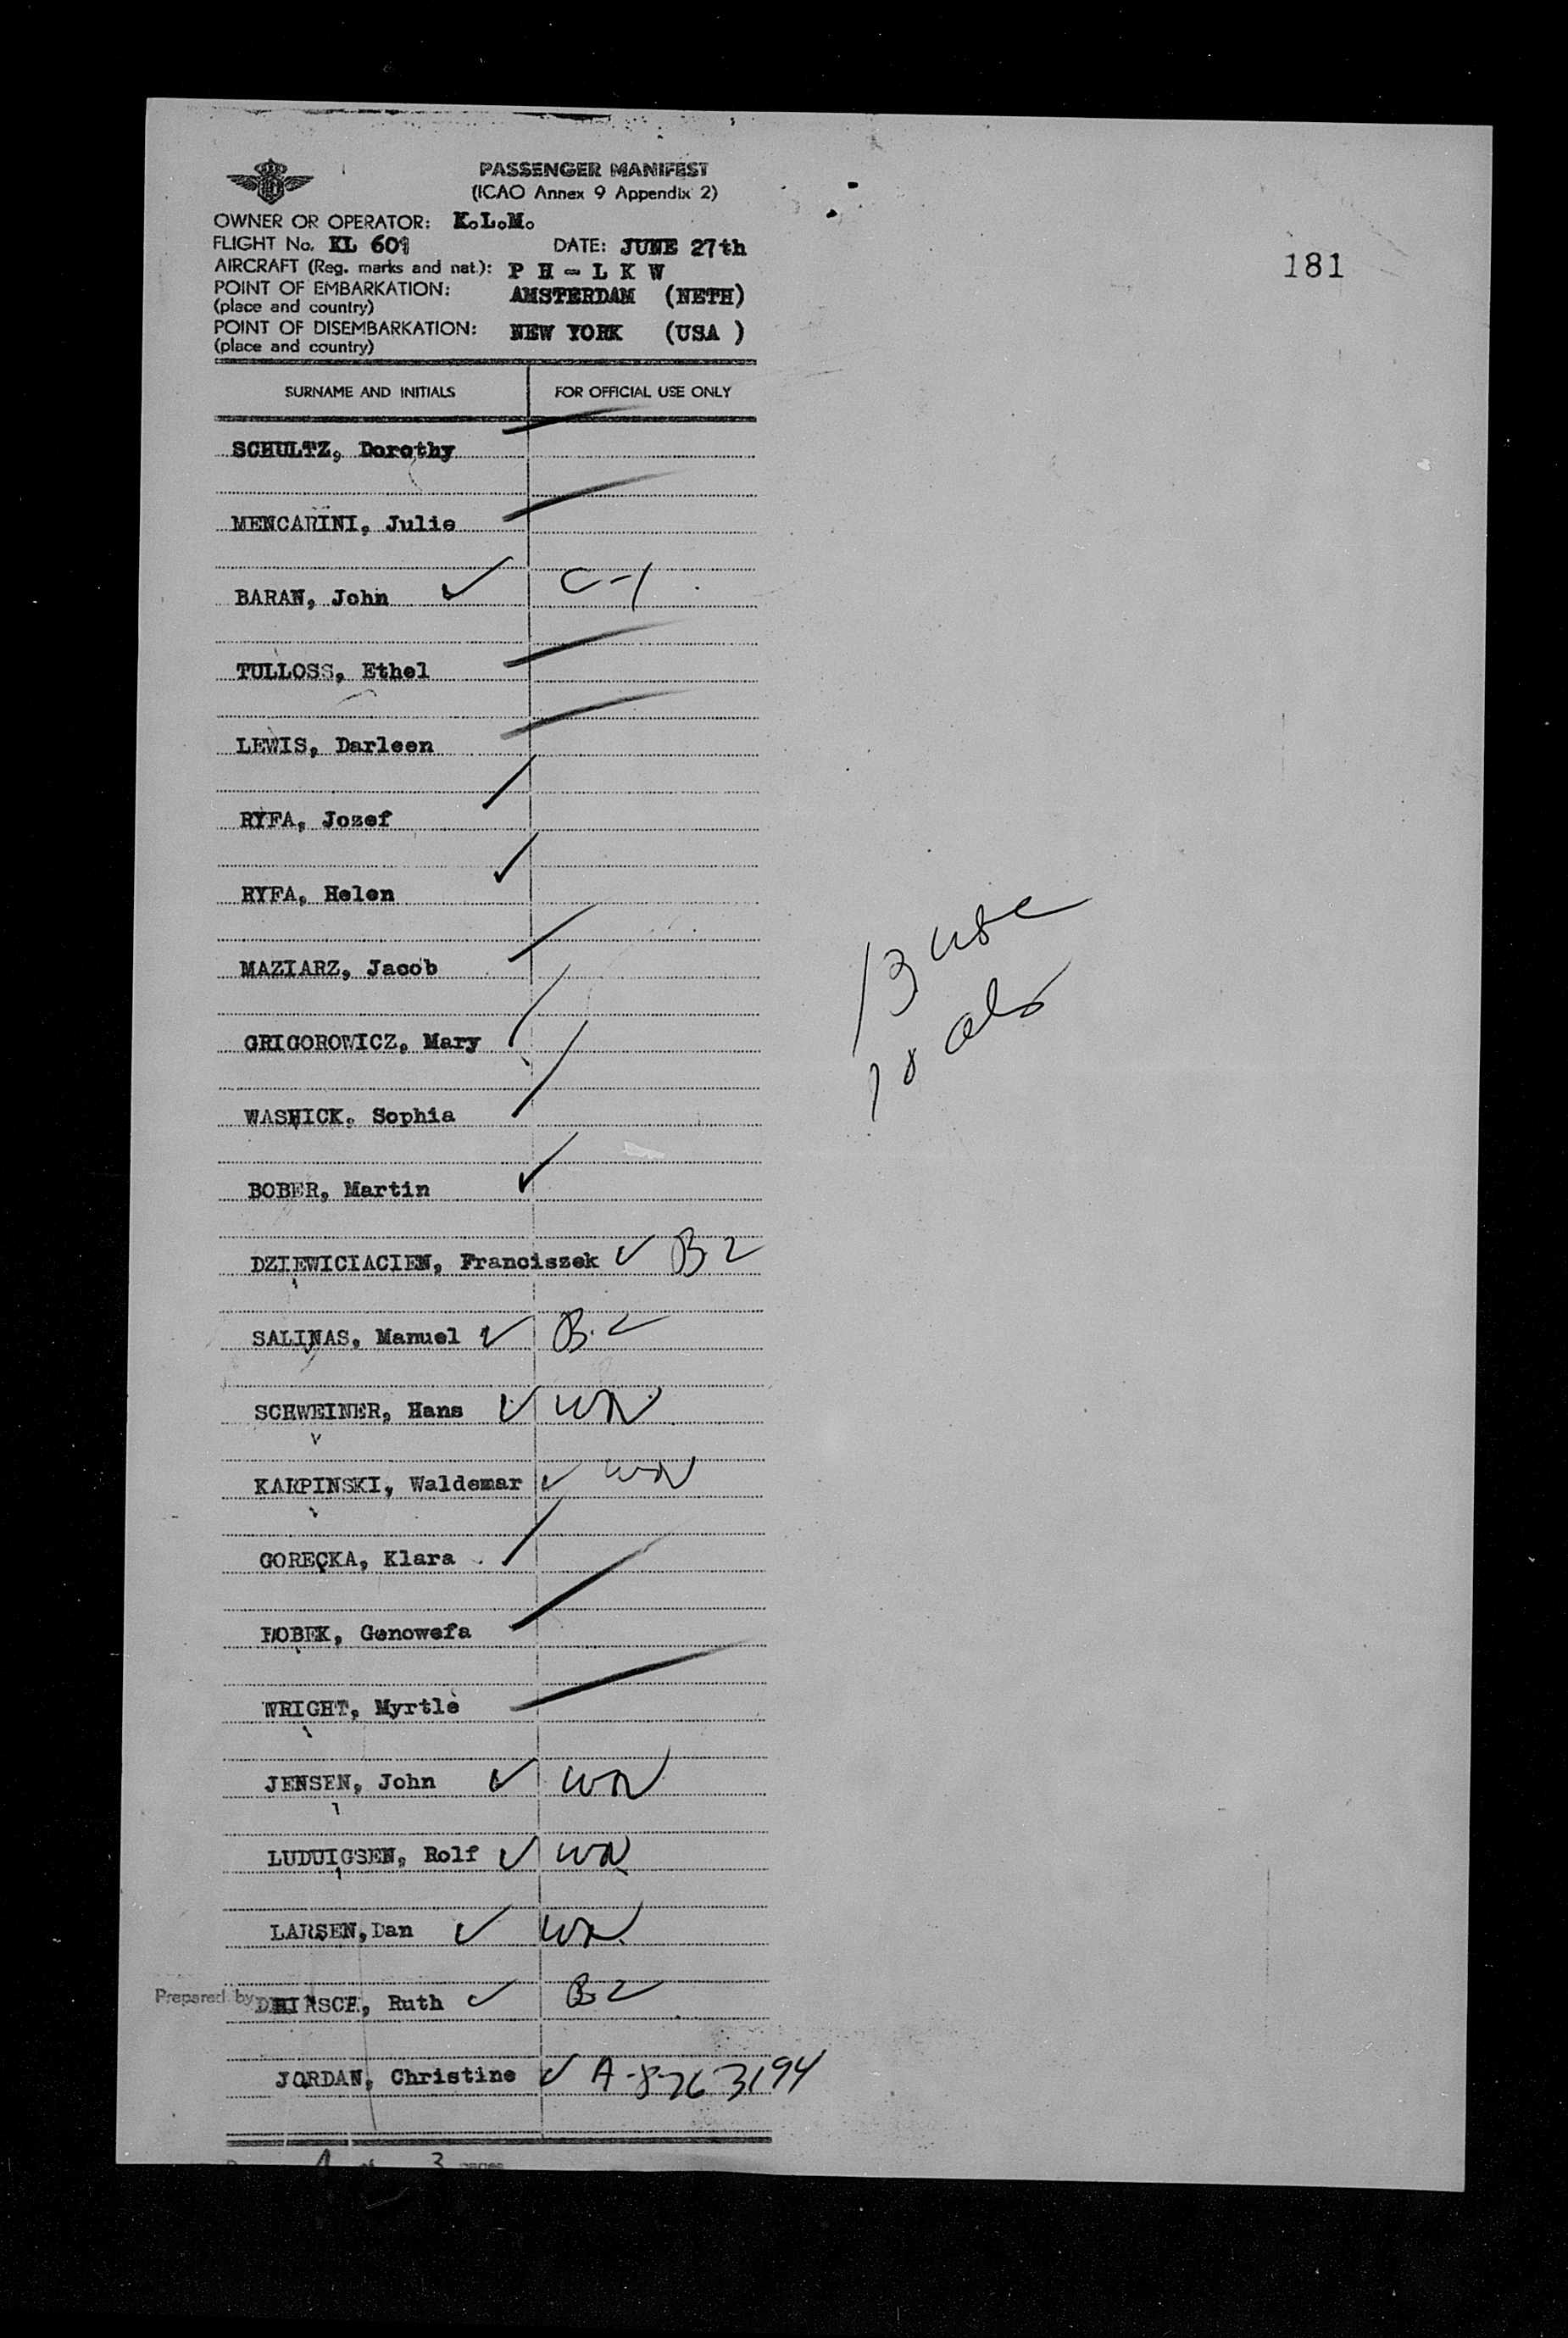 PASSENGER MANIFEST
(ICAO Annex 9 Appendix 2)
OWNER OR OPERATOR: K.L.M.
FLIGHT No. KL 601
DATE: JUNE 27th
AIRCRAFT (Reg. marks and nat.): P H - L K W
181
POINT OF EMBARKATION: AMSTERDAM (NETH)
(place and country)
POINT OF DISEMBARKATION: NEW YORK (USA )
(place and country)
SURNAME AND INITIALS FOR OFFICIAL USE ONLY
SCHULTZ, Dorothy
MENCARINI, Julie
BARAN, John ✓ C-1
TULLOSS, Ethel
LEWIS, Darleen
RYFA, Jozef
RYFA, Helen ✓
MAZIARZ, Jacob
GRIGOROWICZ, Mary
WASHICK, Sophia
BOBER, Martin ✓
DZIEWICIACIEN, Franciszek ✓ B2
SALINAS, Manuel ✓ B.2
SCHWEINER, Hans ✓
KARPINSKI, Waldemar ✓
GORECKA, Klara
BOBEK, Genowefa
WRIGHT, Myrtle
JENSEN, John ✓
LUDUIGSEN, Rolf ✓
LARSEN, Dan ✓
Prepared by
Ruth ✓ B2
JORDAN, Christine ✓ A-8-763194
3 pages
13 usc
10 als